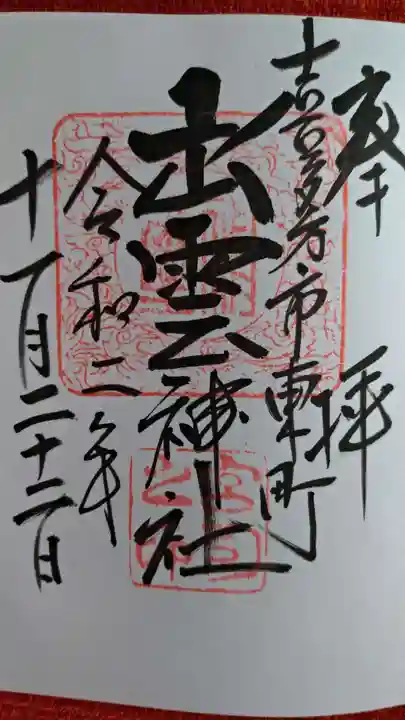 奉拝
喜多方市東町
出雲神社
令和二年
十一月二十二日